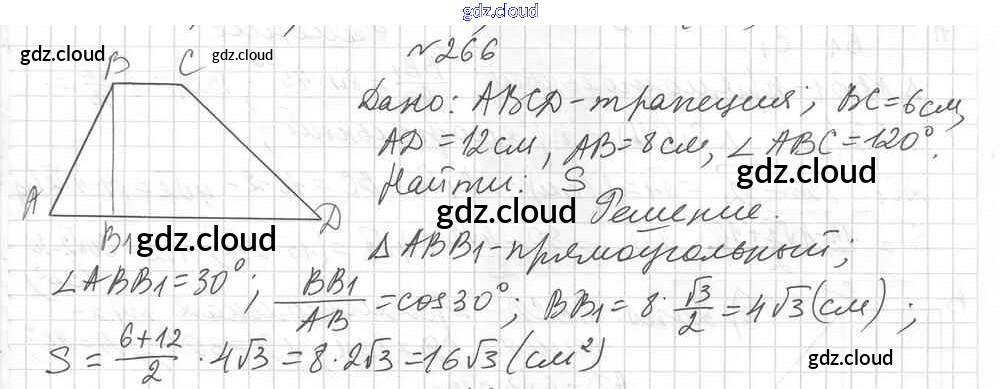 gdz.cloud
№266
gdz.cloud gdz.cloud
B C
Дано: ABCD-трапеция; BC=6см,
AD=12см, AB=8см, ∠ABC=120°.
gdz.cloud
Найти: S
A D gdz.cloud Решение.
B1 gdz.cloud
△ABB1-прямоугольный;
∠ABB1=30°; BB1/AB=cos30°; BB1=8·√3/2=4√3(см);
S=(6+12)/2·4√3=8·2√3=16√3(см²)
gdz.cloud